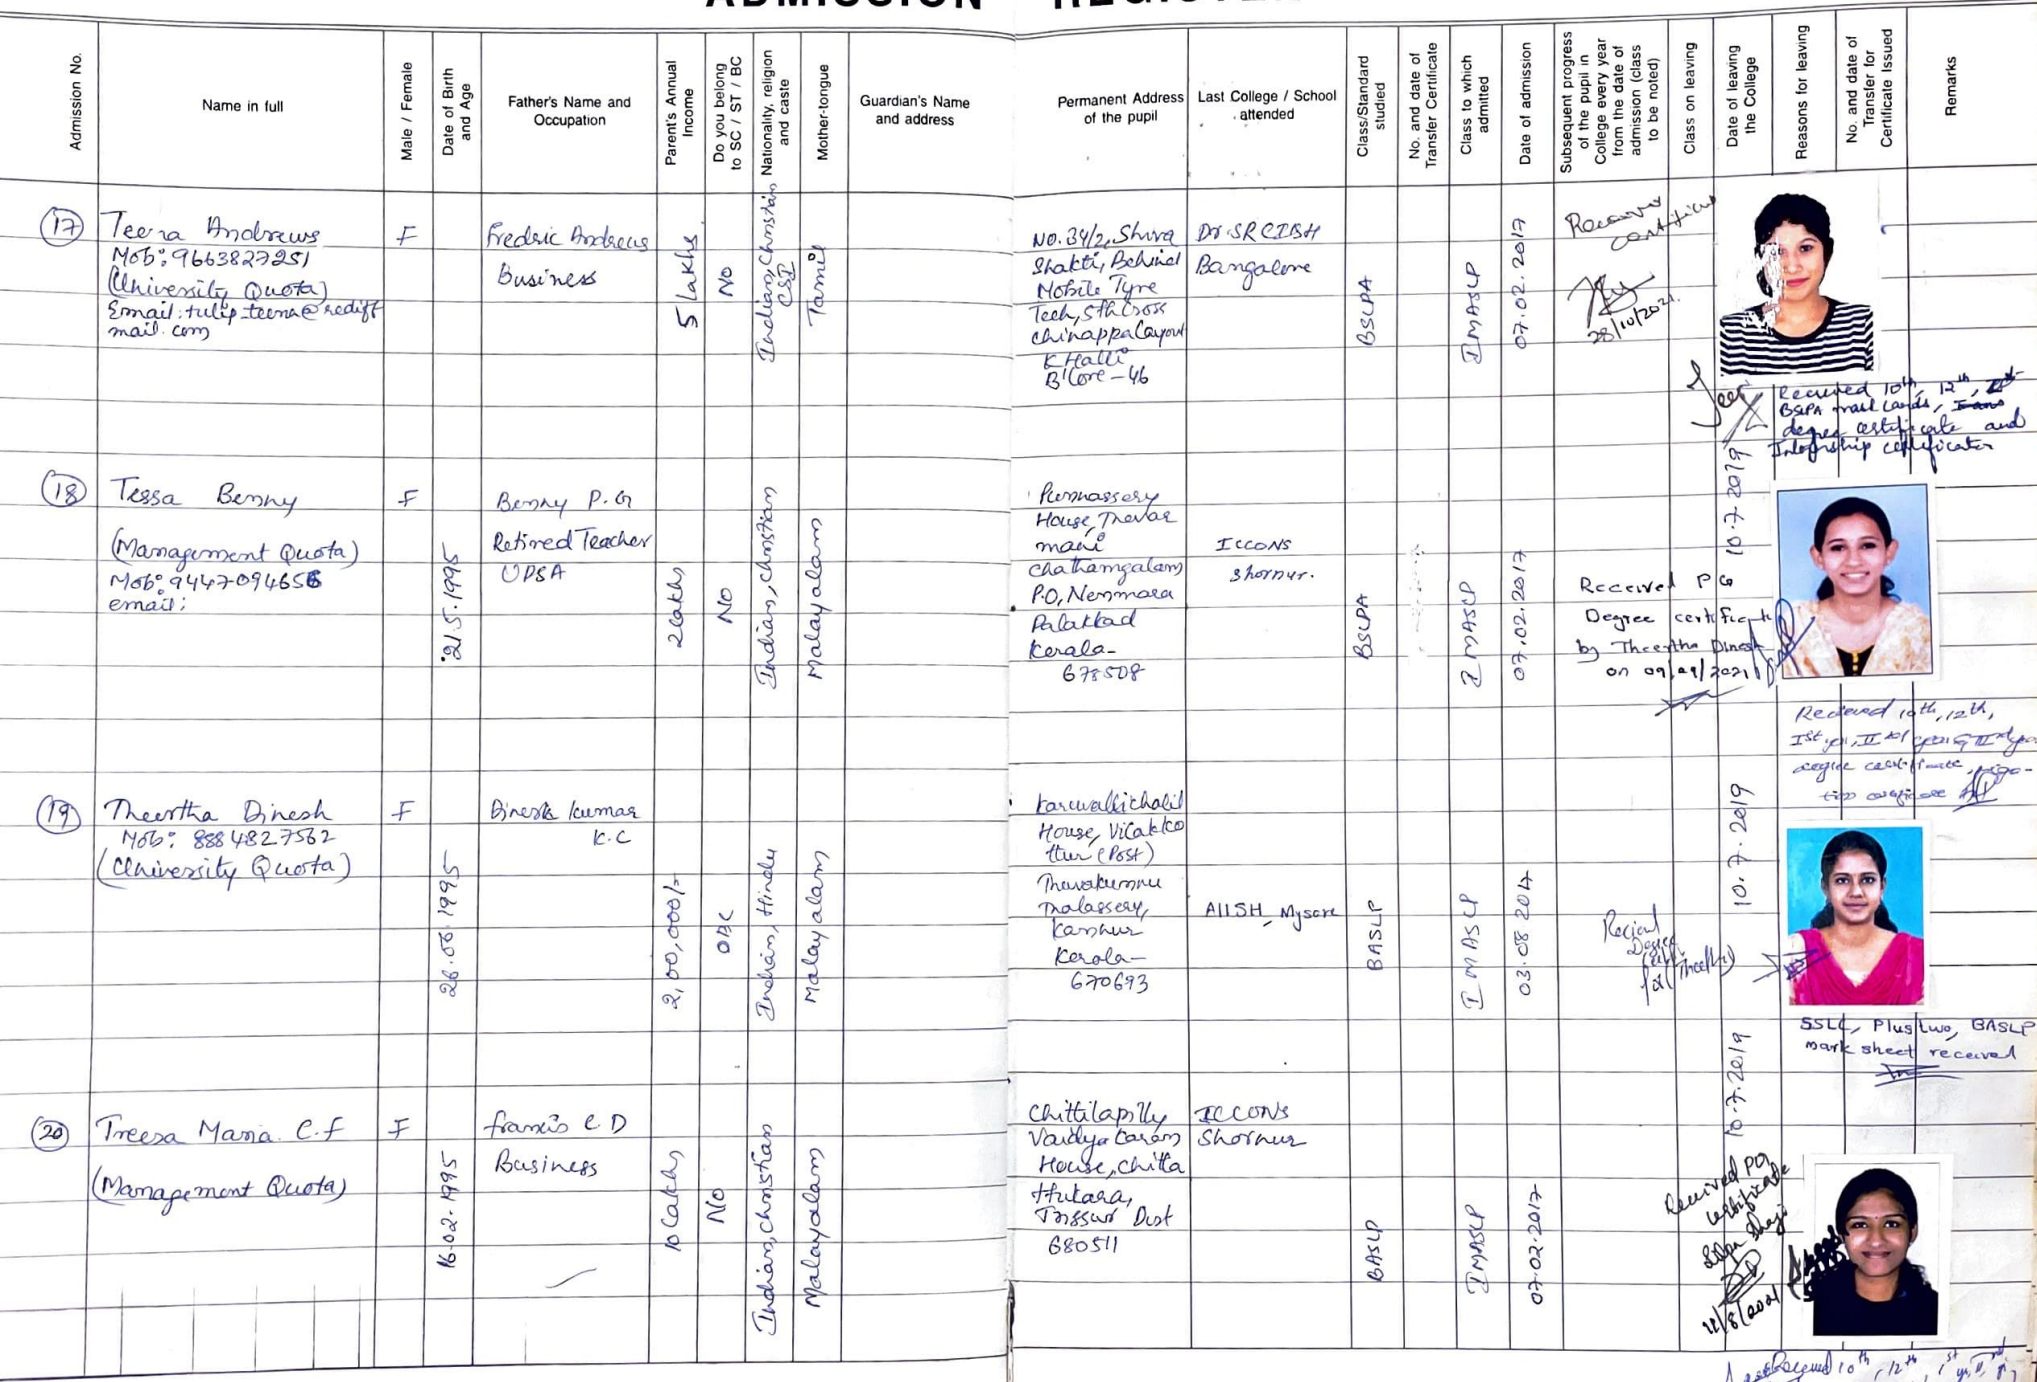 ADMISSION REGISTER
Admission No.
Name in full
Male / Female
Date of Birth
and Age
Father's Name and
Occupation
Parent's Annual
Income
Do you belong
to SC / ST / BC
Nationality, religion
and caste
Mother-tongue
Guardian's Name
and address
Permanent Address
of the pupil
Last College / School
attended
Class/Standard
studied
No. and date of
Transfer Certificate
Class to which
admitted
Date of admission
Subsequent progress
of the pupil in
College every year
from the date of
admission (class
to be noted)
Class on leaving
Date of leaving
the College
Reasons for leaving
No. and date of
Transfer for
Certificate Issued
Remarks
17
Teena Andrews
Mob: 9663827251
(University Quota)
Email: tulip_teena@rediff
mail.com
F
Fredric Andrews
Business
5 lakhs
No
Indian, Christian
CSI
Tamil
No. 34/2, Shiva
Shakti, Behind
Mobile Tyre
Tech, 5th Cross
Chinappa Layout
K Halli
B'lore-46
Dr SRCISH
Bangalore
BSLPA
I MASLP
07.02.2017
28/10/2021.
Received 10th, 12th,
BSLPA mark cards,
degree certificate and
Internship certificates
18
Tessa Benny
(Management Quota)
Mob: 9447094656
email:
F
21.5.1995
Benny P. G
Retired Teacher
UPSA
2 lakhs
No
Indian, Christian
Malayalam
Punnassery
House, Thevar
mani
Chathamgalam
P.O, Nemmara
Palakkad
Kerala-
678508
ICCONS
Shornur.
BSLPA
I MASLP
07.02.2017
Received PG
Degree certificate
by Theertha Dinesh
on 09/09/2021
10.7.2019
Received 10th, 12th,
degree certificate,
19
Theertha Dinesh
Mob: 8884827562
(University Quota)
F
26.06.1995
Dinesh Kumar
K.C
2,00,000/-
OBC
Indian, Hindu
Malayalam
Karuvallichalil
House, Vilakko
ttur (Post)
Thuvakunnu
Thalassery,
Kannur
Kerala-
670693
AIISH, Mysore
BASLP
I MASLP
03.08.2014
Degree
10.7.2019
SSLC, Plus two, BASLP
mark sheet received
20
Treesa Maria C.F
(Management Quota)
F
16.02.1995
Francis C D
Business
10 lakhs
No
Indian, Christian
Malayalam
Chittilapilly
Vaidyakaran
House, Chitta
ttukara,
Trissur Dist
680511
ICCONS
Shornur
BASLP
I MASLP
07.02.2017
10.7.2019
Received PG
certificate
11/8/2021
Received 10th, 12th, 1st